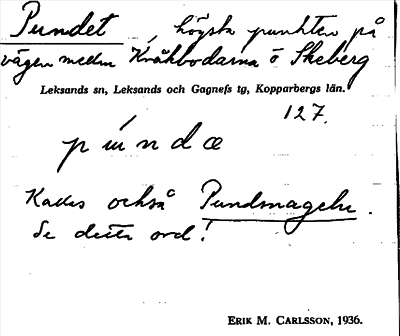 Pundet, högsta punkten på
vägen mellan Kråkbodarna o Skeberg
Leksands sn, Leksands och Gagnefs tg, Kopparbergs län.
127.
Kallas också Pundsmagelu.
Se detta ord!
ERIK M. CARLSSON, 1936.